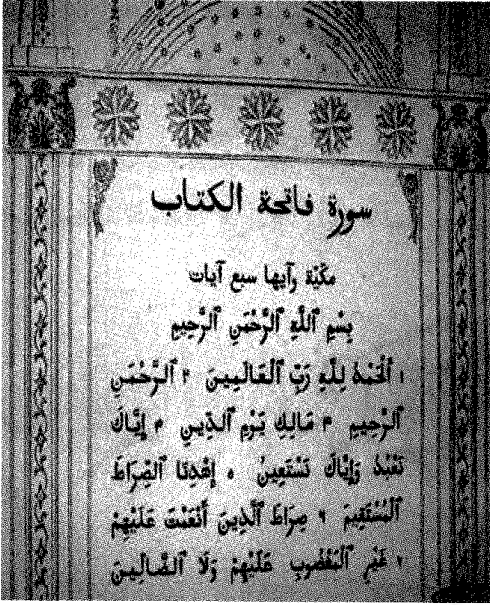 سورة فاتحة الكتاب
مكيّة وآيها سبع آيات
بِسْمِ ٱللَّهِ ٱلرَّحْمَنِ ٱلرَّحِيمِ
١ ٱلْحَمْدُ لِلَّهِ رَبِّ ٱلْعَالَمِينَ ٢ ٱلرَّحْمَنِ
ٱلرَّحِيمِ ٣ مَالِكِ يَوْمِ ٱلدِّينِ ٤ إِيَّاكَ
نَعْبُدُ وَإِيَّاكَ نَسْتَعِينُ ٥ إِهْدِنَا ٱلصِّرَاطَ
ٱلْمُسْتَقِيمَ ٦ صِرَاطَ ٱلَّذِينَ أَنْعَمْتَ عَلَيْهِمْ
٧ غَيْرِ ٱلْمَغْضُوبِ عَلَيْهِمْ وَلَا ٱلضَّالِّينَ